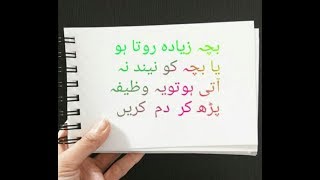 بچہ زیادہ روتا ہو
یا بچہ کو نیند نہ
آتی ہوتویہ وظیفہ
پڑھ کر دم کریں